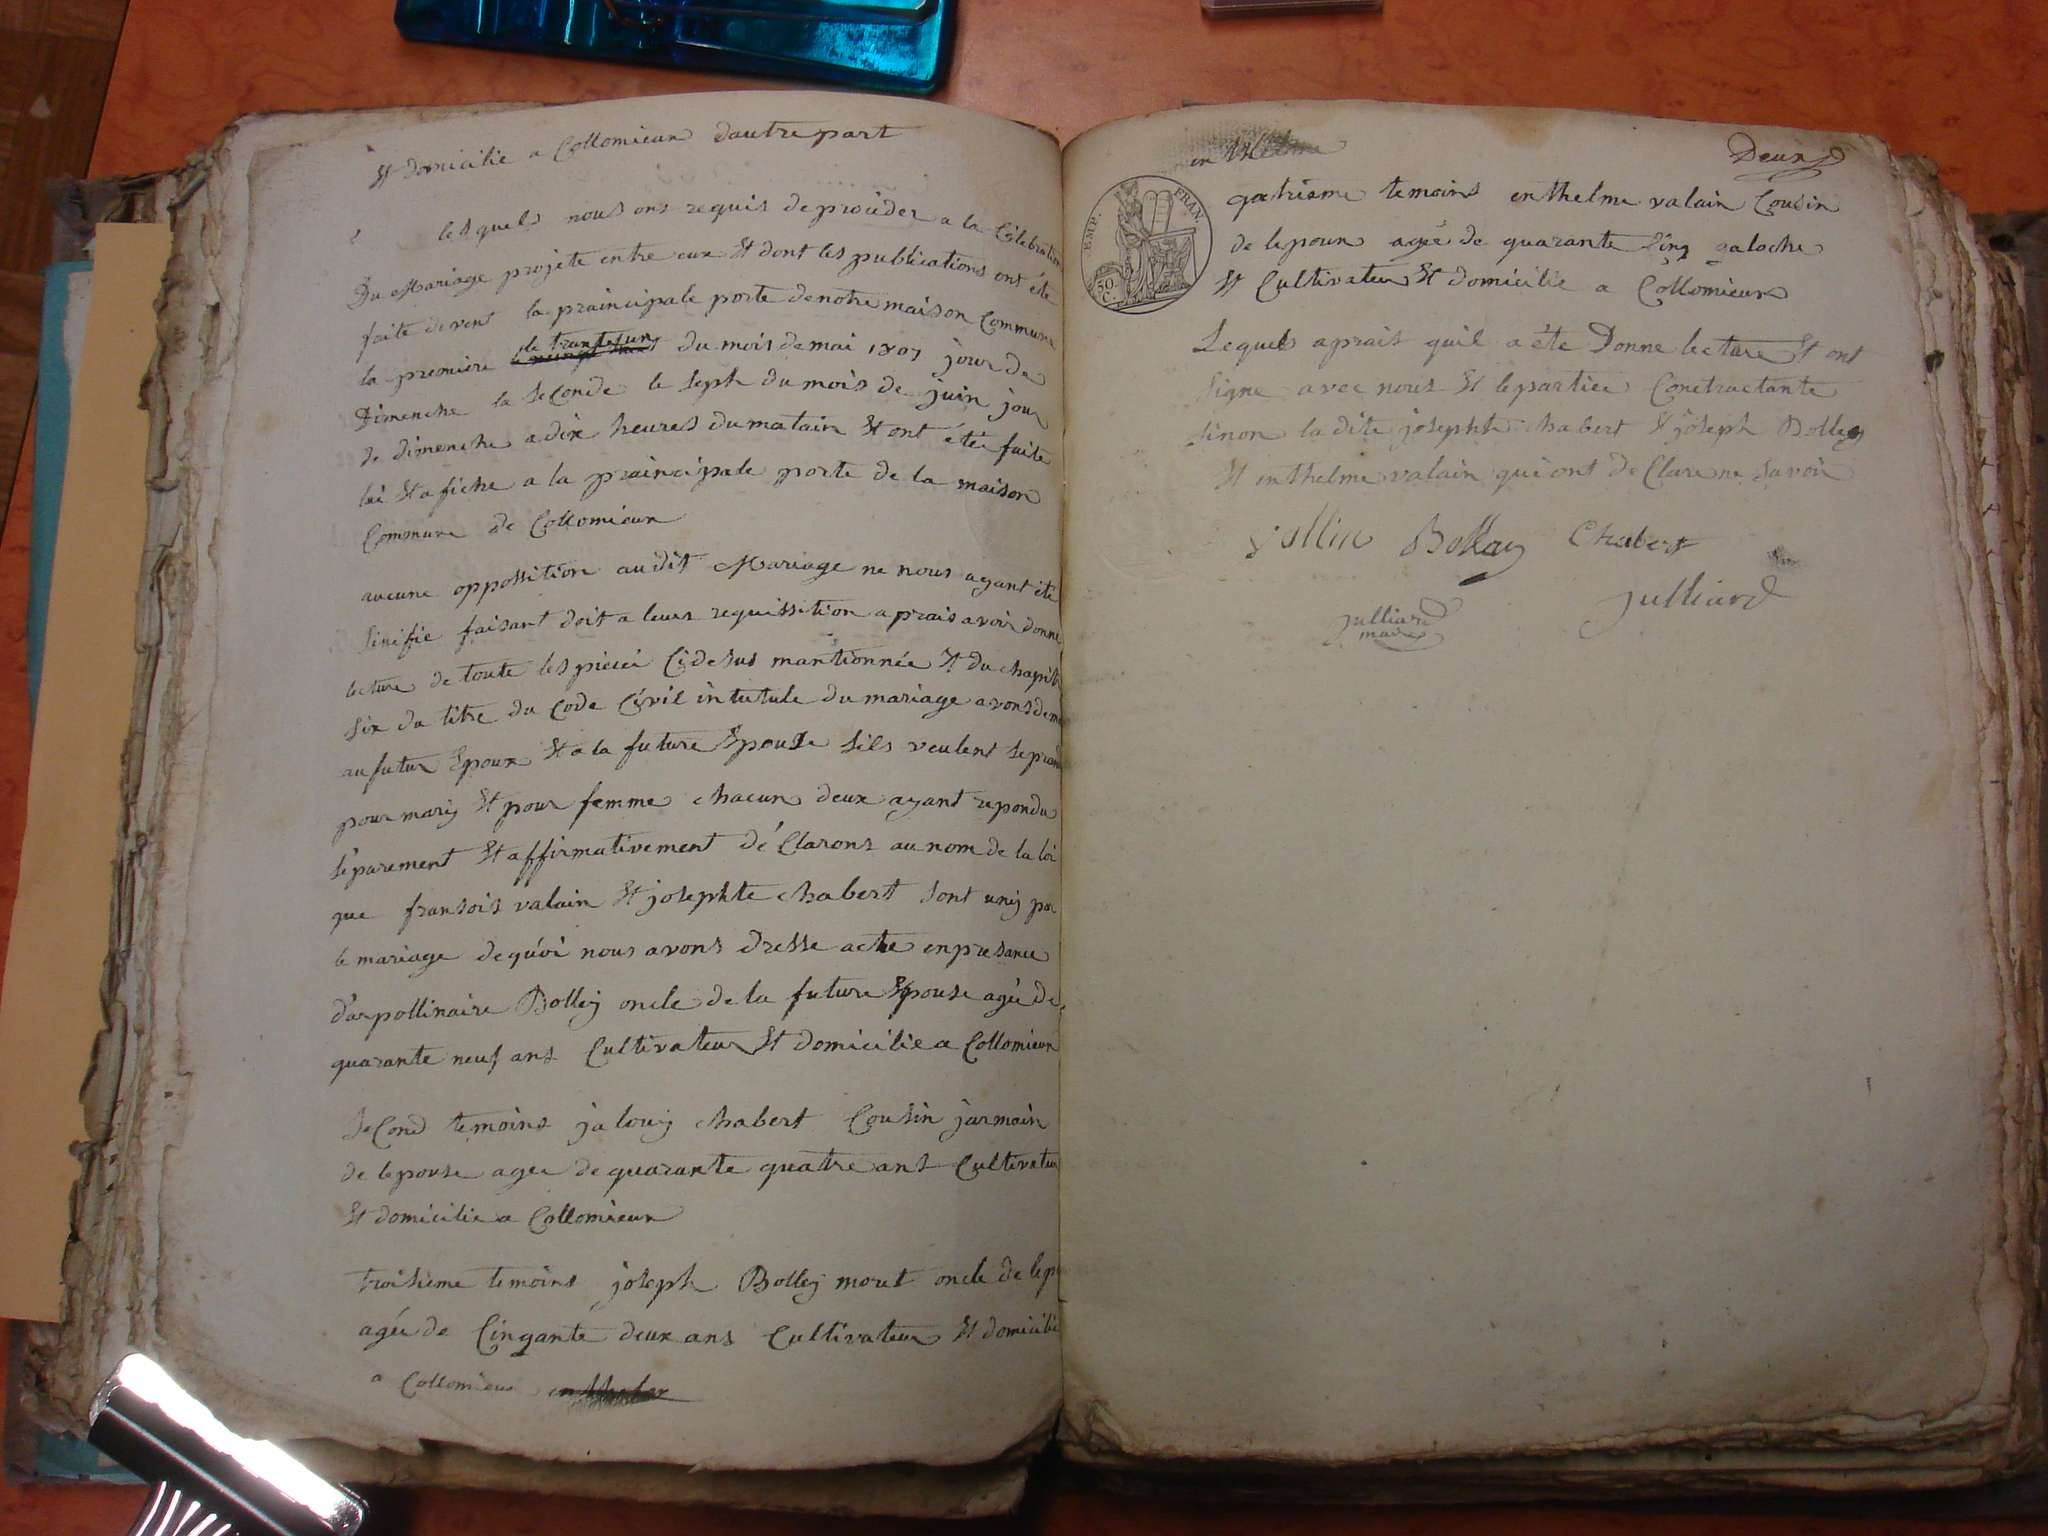 Et domicilie a Collomieux dautre part
lesquels nous ons requis de proceder a la Celebration
Du Mariage projete entre eux Et dont les publications ont été
faite devent la praincipale porte de notre maison Commune
la premiere le trante un du mois de mai 1807 jour de
Dimenche la seConde le Septh du mois de juin jour
de dimenche a dix heures du matain Et ont été faite
lui Et afiche a la praincipale porte de la maison
Commune de Collomieux
aucune oppossition audit Mariage ne nous ayant été
Sinifie faisant doit a leurs requissition aprais avoir donne
lecture de toute les pieces Cidesus mantionnée Et du chapit
Six du titre du Code Civil intutule du mariage avons dem
au futur Epoux Et a la future Epouse Sils veulent se prand
pour mariy Et pour femme chacun deux ayant repondu
Séparement Et affirmativement déClarons au nom de la loi
que fransois valain Et josephte chabert sont uniy par
le mariage dequoi nous avons dresse acte en presance
d'appollinaire Bolley oncle de la future Epouse agée de
quarante neuf ans Cultivateur Et domicilie a Collomieux
SeCond temoins ja louiy chabert Cousin jarmain
de lepouse agee de quarante quatre ans Cultivateur
Et domicilie a Collomieux
troisieme temoins joseph Bolley moret oncle de lep
agée de Cinqante deux ans Cultivateur Et domicilie
a Collomieux
Deux
EMP. FRAN.
50.
C.
qatrieme temoins enthelme valain Cousin
de lepoux agée de quarante Sinq galoche
Et Cultivateur Et domicilie a Collomieux
Lequels aprais quil a éte Donne lecture Et ont
Signe avec nous Et le partiee Conctractante
sinon la dite josephte chabert Et joseph Bolley
Et enthelme valain qui ont deClare ne savoir
vallin Bolley Chabert
julliard
julliard
maire